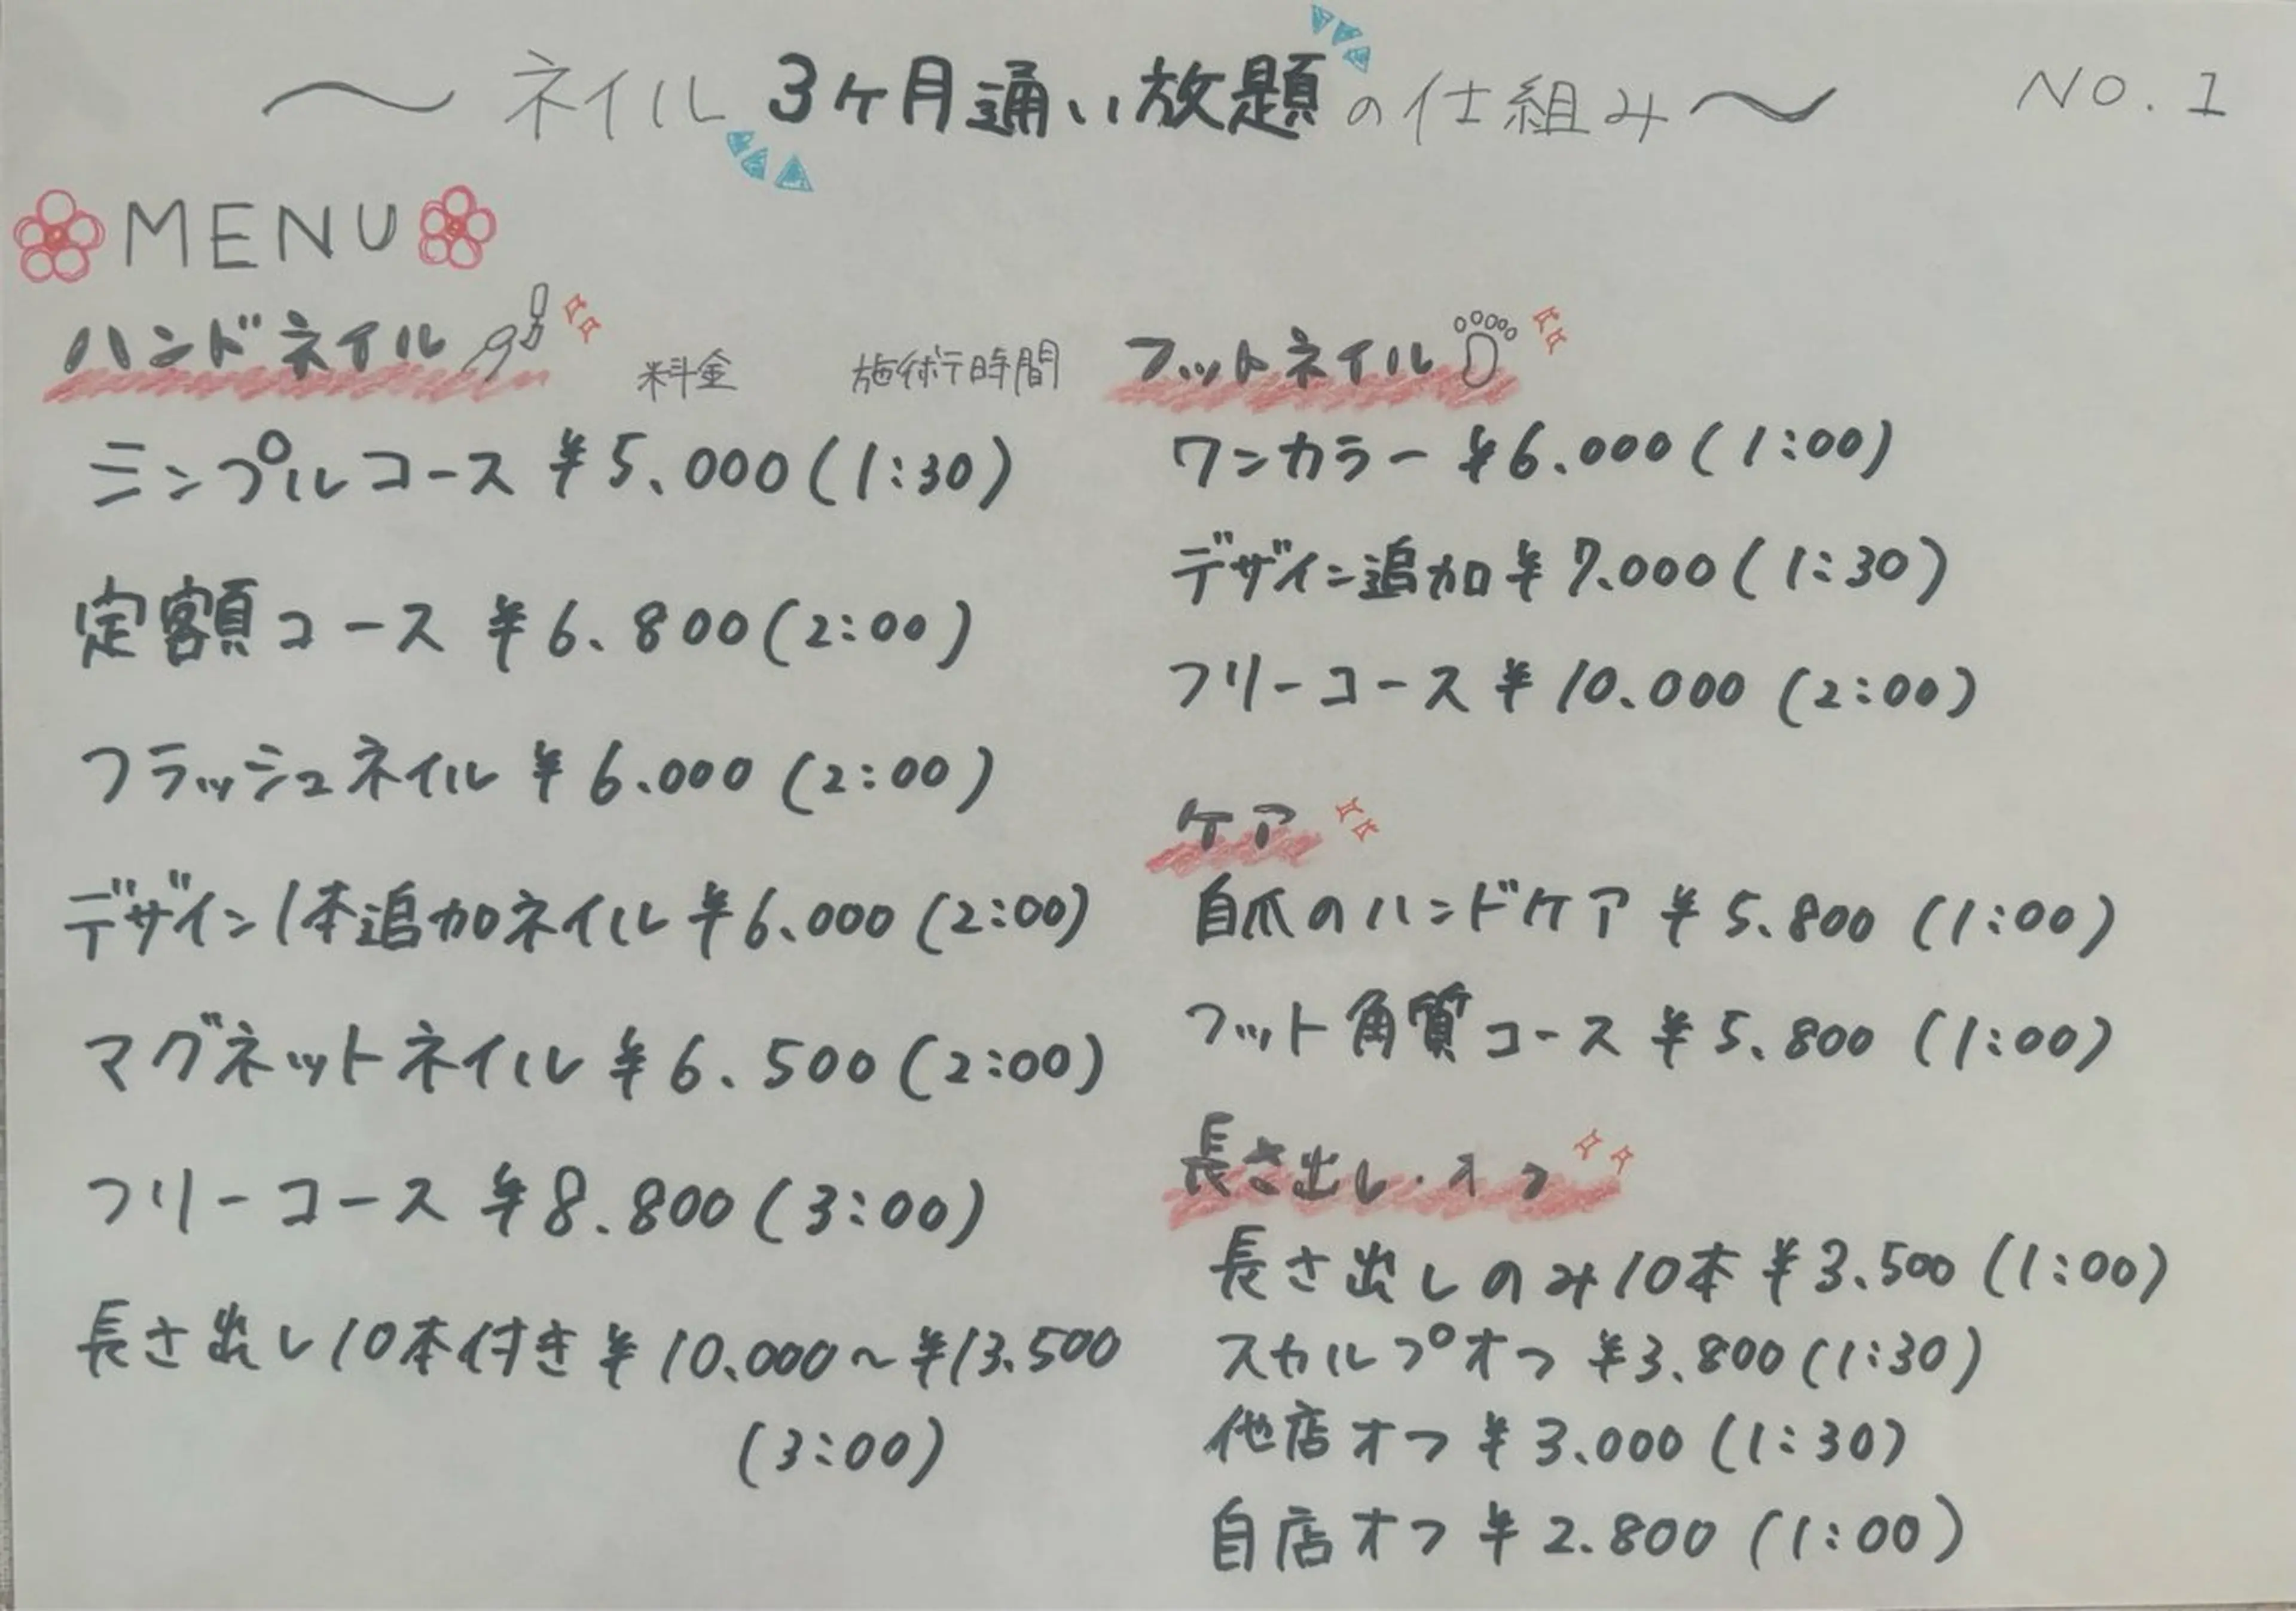 ～ネイル3ヶ月通い放題の仕組み～
NO.1
MENU
ハンドネイル
料金 施術時間
シンプルコース ¥5,000(1:30)
定額コース ¥6,800(2:00)
フラッシュネイル ¥6,000(2:00)
デザイン1本追加ネイル ¥6,000(2:00)
マグネットネイル ¥6,500(2:00)
フリーコース ¥8,800(3:00)
長さ出し10本付き ¥10,000～¥13,500
(3:00)
フットネイル
ワンカラー ¥6,000(1:00)
デザイン追加 ¥7,000(1:30)
フリーコース ¥10,000(2:00)
ケア
自爪のハンドケア ¥5,800(1:00)
フット角質コース ¥5,800(1:00)
長さ出し・オフ
長さ出しのみ10本 ¥3,500(1:00)
スカルプオフ ¥3,800(1:30)
他店オフ ¥3,000(1:30)
自店オフ ¥2,800(1:00)